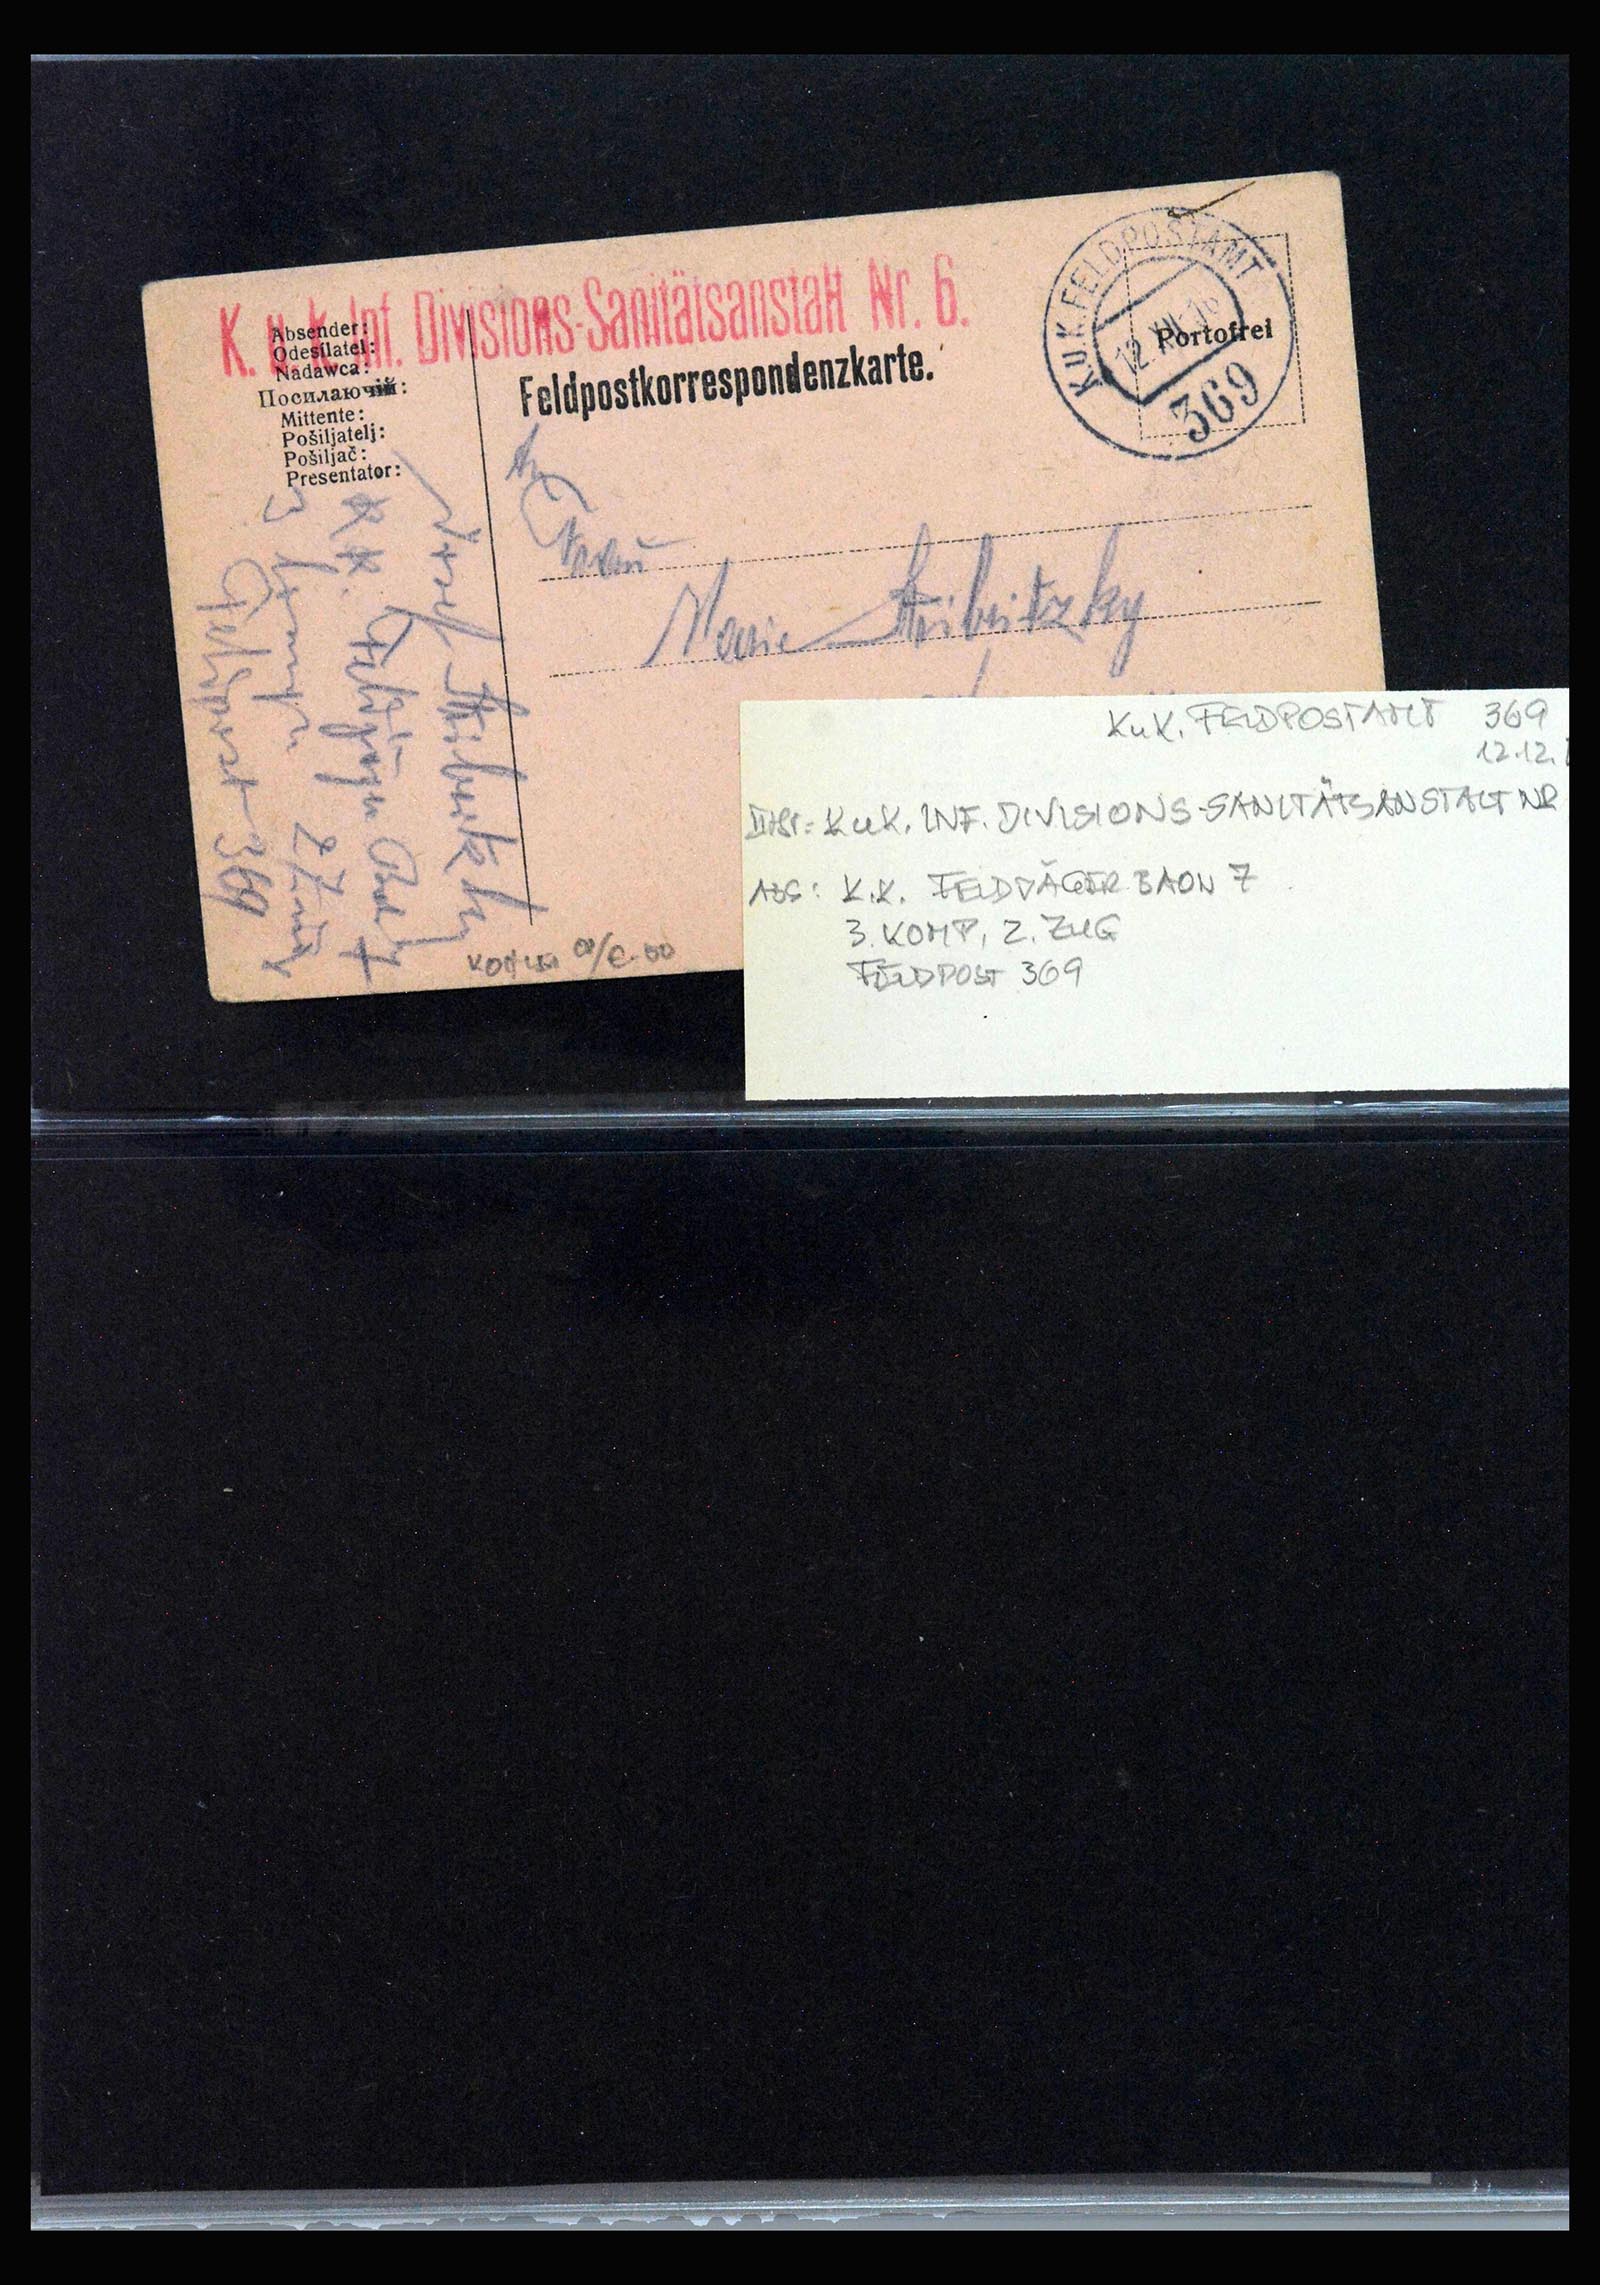 K. u. k. Inf. Divisions-Sanitätsanstalt Nr. 6.
Absender:
Odesílatel:
Nadawca:
Посилаючий:
Mittente:
Pošiljatelj:
Pošiljač:
Presentator:
Feldpostkorrespondenzkarte.
K.u.K. FELDPOSTAMT
12.XII.16
369
Portofrei
An
Frau
Marie Stributzky
Josef Stributzky
K.K. Feldjäger 7
3 2 Zug
Feldpost 369
K.u.K. FELDPOSTAMT 369
12.12.
K.u.K. INF. DIVISIONS-SANITÄTSANSTALT NR
ABS: K.K. FELDJÄGER BAON 7
3. KOMP, 2. ZUG
FELDPOST 369